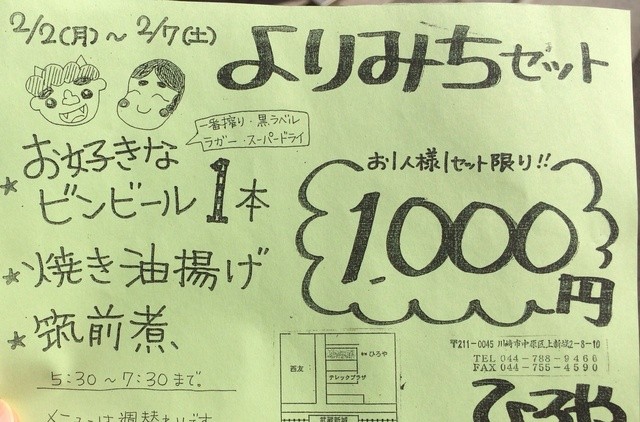 2/2(月)～2/7(土)
よりみちセット
一番搾り・黒ラベル
ラガー・スーパードライ
お好きな
★ ビンビール1本
★ 焼き油揚げ
★ 筑前煮
5:30～7:30まで。
メニューは週替わりです
お1人様1セット限り!!
1000円
西友
ひろや
テレックプラザ
武蔵新城
〒211-0045 川崎市中原区上新城2-8-10
TEL 044-788-9466
FAX 044-755-4590
ひろや